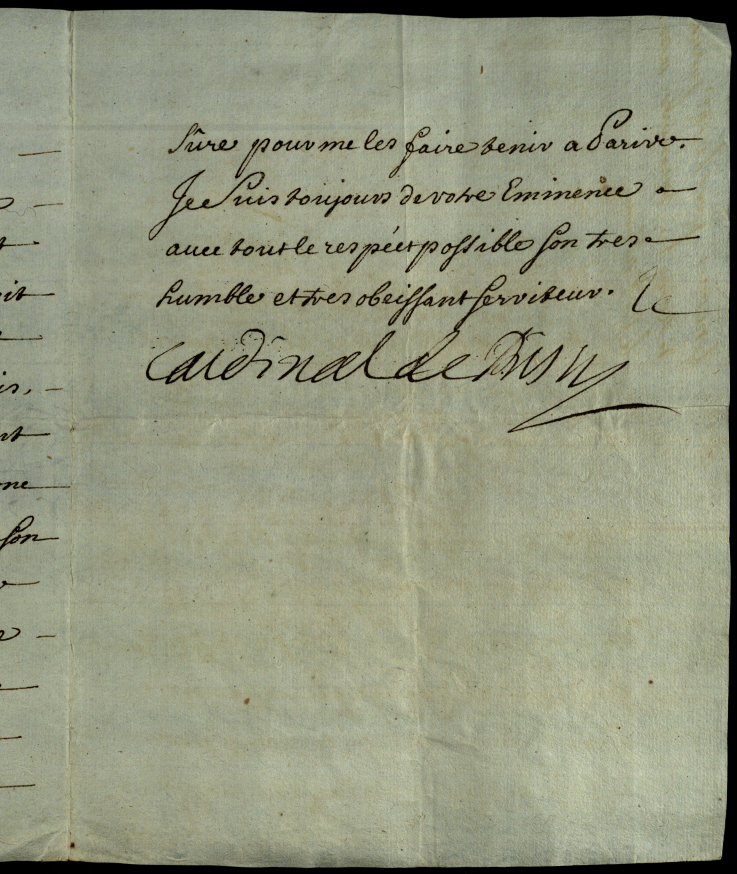 sûre pour me les faire tenir a Paris.
Je suis toujours de votre Eminence a
auec tout le respéct possible son tres
humble et tres obeissant serviteur. Le
Cardinal de
it
is.
nt
ne
son